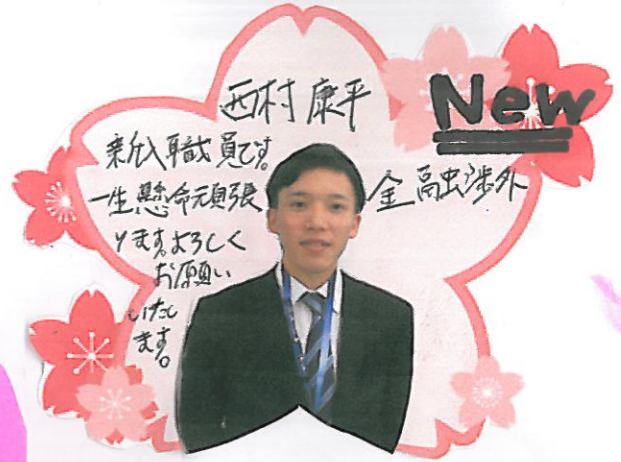 西村康平
New
新入職員です。
一生懸命頑張
ります。よろしく
お願い
いたし
ます。
金融渉外